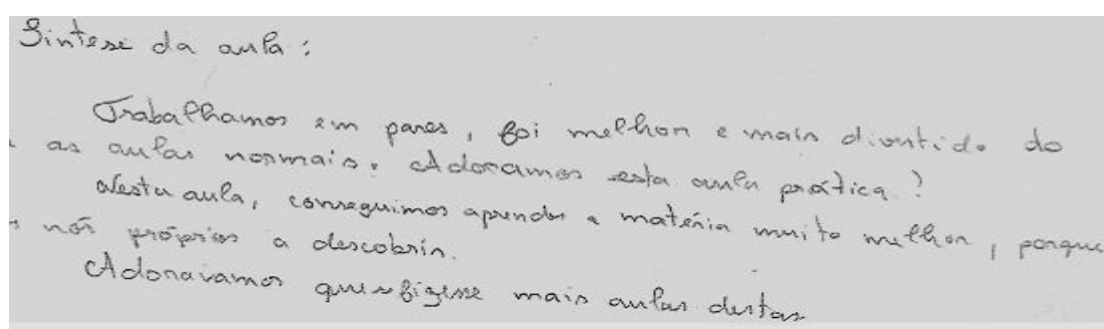 Sintese da aula :
Trabalhamos em pares, foi melhor e mais divertido do
as aulas normais. Adoramos esta aula prática !
Nesta aula, conseguimos aprender a matéria muito melhor, porque
nós próprios a descobrir.
Adoravamos que fizesse mais aulas destas